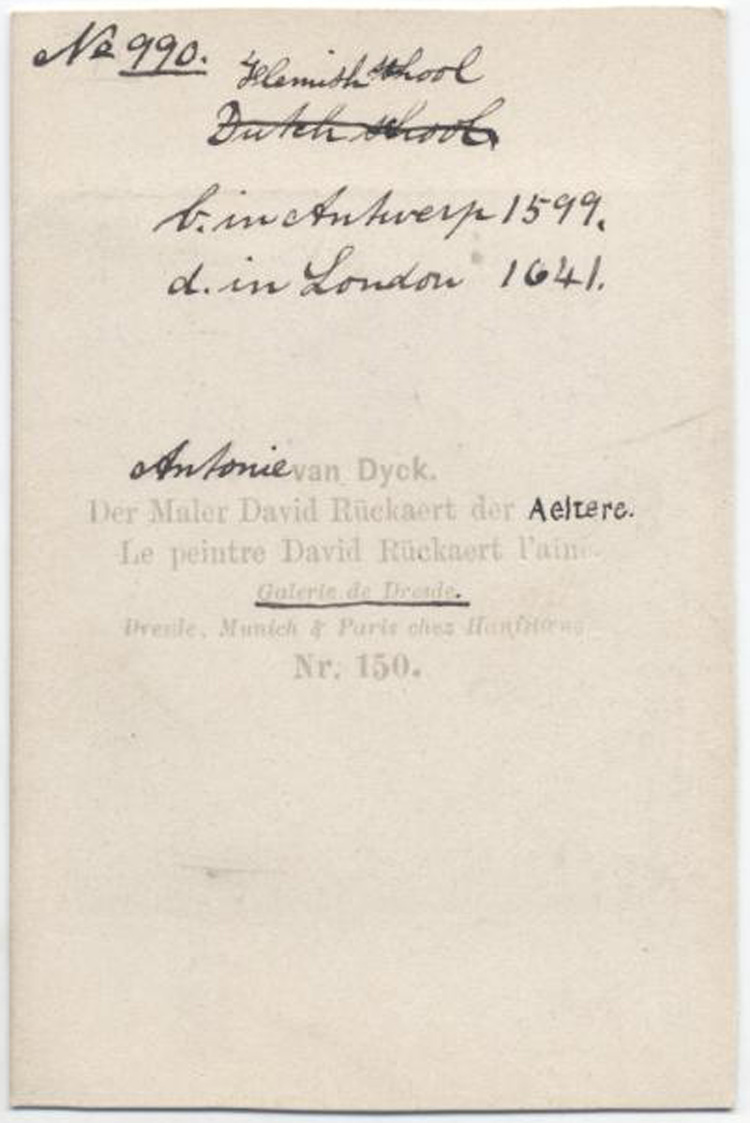 No 990.
Flemish school
Dutch school.
b. in Antwerp 1599.
d. in London 1641.
Antonie van Dyck.
Der Maler David Rückaert der Aeltere.
Le peintre David Rückaert l'aine
Galerie de Dresde.
Dresde, Munich & Paris chez Hanfstaeng
Nr. 150.